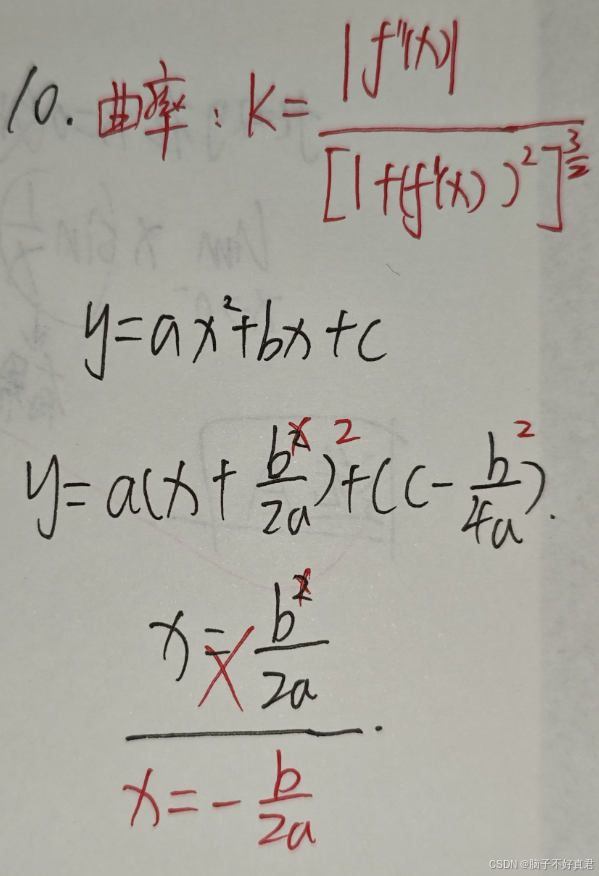 10. 曲率: K = |f''(x)| / [1+(f'(x))²]^(3/2)
y=ax²+bx+c
y=a(x+b²/2a)²+(c-b²/4a).
x=b²/2a.
x=-b/2a
CSDN @脑子不好真君